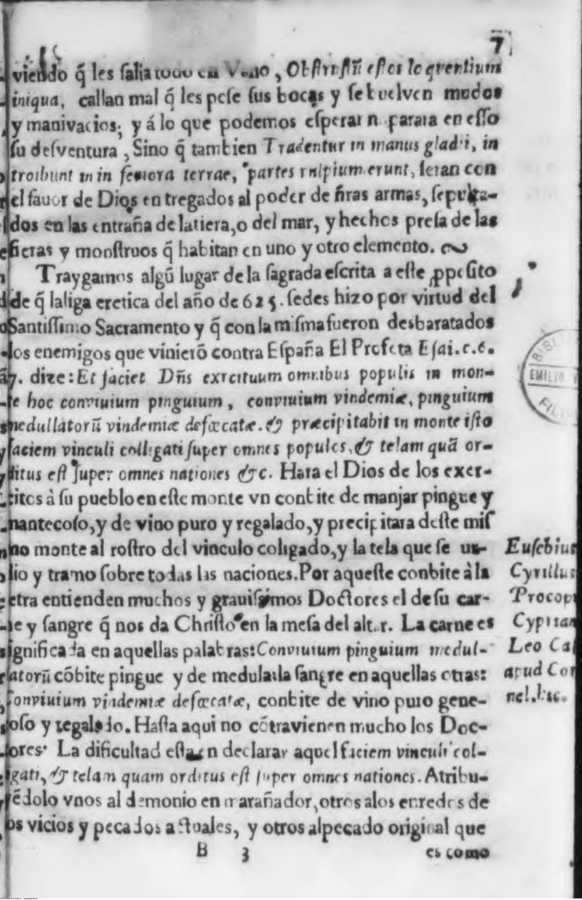 7
viendo q̃ les salia todo en vano, Obstrustũ est os loquentium
iniqua, callan mal q̃ les pese sus bocas y se buelven mudos
y manivacios; y á lo que podemos esperar n para ra en esso
su desventura, Sino q̃ tambien Tradentur in manus gladii, in
troibunt in in feriora terrae, partes vulpium erunt, seran con
el favor de Dios entregados al poder de ñras armas, sepulta-
dos en las entraña de la tiera, o del mar, y hechos presa de las
fieras y monstruos q̃ habitan en uno y otro elemento.
Traygamos algũ lugar de la sagrada escrita a este pposito
de q̃ la liga eretica del año de 625. se des hizo por virtud del
Santissimo Sacramento y q̃ con la misma fueron desbaratados
los enemigos que vinierõ contra España El Profeta Esai. c. 6.
7. dize: Et faciet Dñs exrcituum omnibus populis in mon-
te hoc conviuium pinguium, conviuium vindemiæ, pinguium
medullatorũ vindemiæ defœcatæ. & præcipitabit in monte isto
faciem vinculi colligati super omnes populos, & telam quã or-
ditus est super omnes nationes &c. Hara el Dios de los exer-
citos à su pueblo en este monte vn conbite de manjar pingue y
mantecoso, y de vino puro y regalado, y precipitara deste mis
mo monte al rostro del vinculo coligado, y la tela que se ur-
dio y tramo sobre todas las naciones. Por aqueste conbite à la
letra entienden muchos y gravissimos Doctores el de su car-
ne y sangre q̃ nos da Christo en la mesa del altar. La carne es
significada en aquellas palabras: Conviuium pinguium medul-
latorũ cõbite pingue y de medulada sangre en aquellas otras:
Conviuium vindemiæ defœcatæ, conbite de vino puro gene-
roso y regalado. Hasta aqui no cõtravienen mucho los Doc-
tores. La dificultad esta en declarar aquel faciem vinculi col-
ligati, & telam quam orditus est super omnes nationes. Atribu-
yẽdolo vnos al demonio en marañador, otros a los enredos de
los vicios y pecados actuales, y otros al pecado original que
B 3 es como
Eusebius
Cyrillus
Procop
Cyprian
Leo Cas
apud Cor
nel. hic.
BIBLI
EMILIO
FILI